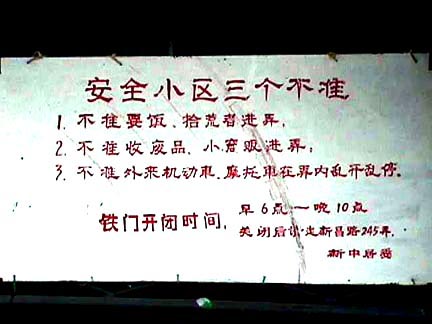 安全小区三个不准
1. 不准要饭、拾荒者进弄;
2. 不准收废品、小商贩进弄;
3. 不准外来机动車、摩托車在弄内乱开乱停。
铁门开闭时间, 早6点一晚10点
关闭后请走新昌路245弄,
新中居委